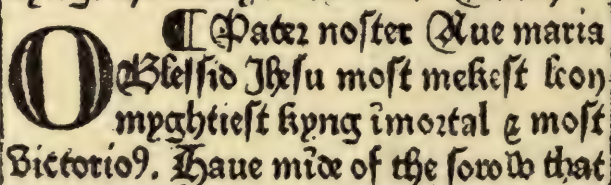 ¶ Pater noſter Aue maria
O Bleſſid Jheſu moſt mekeſt lcon
myghtieſt kyng īmortal ⁊ moſt
Victorioꝰ. Haue mīde of the ſorow that